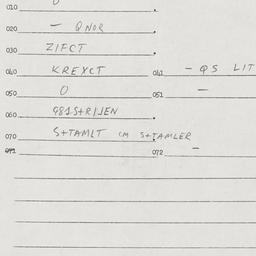 010 0
020 - QNOR
030 ZIFCT
040 KREYCT 041 - QS LIT
050 0 051 -
060 981S+RIJEN
070 S+TAMLT CM S+TAMLER
071 072 -